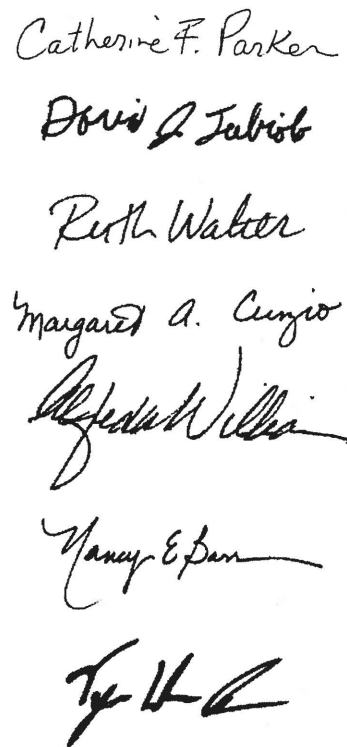 Catherine F. Parker
David J
Ruth Walter
Margaret A. Cunzio
Alfreda William
Nancy E Barr